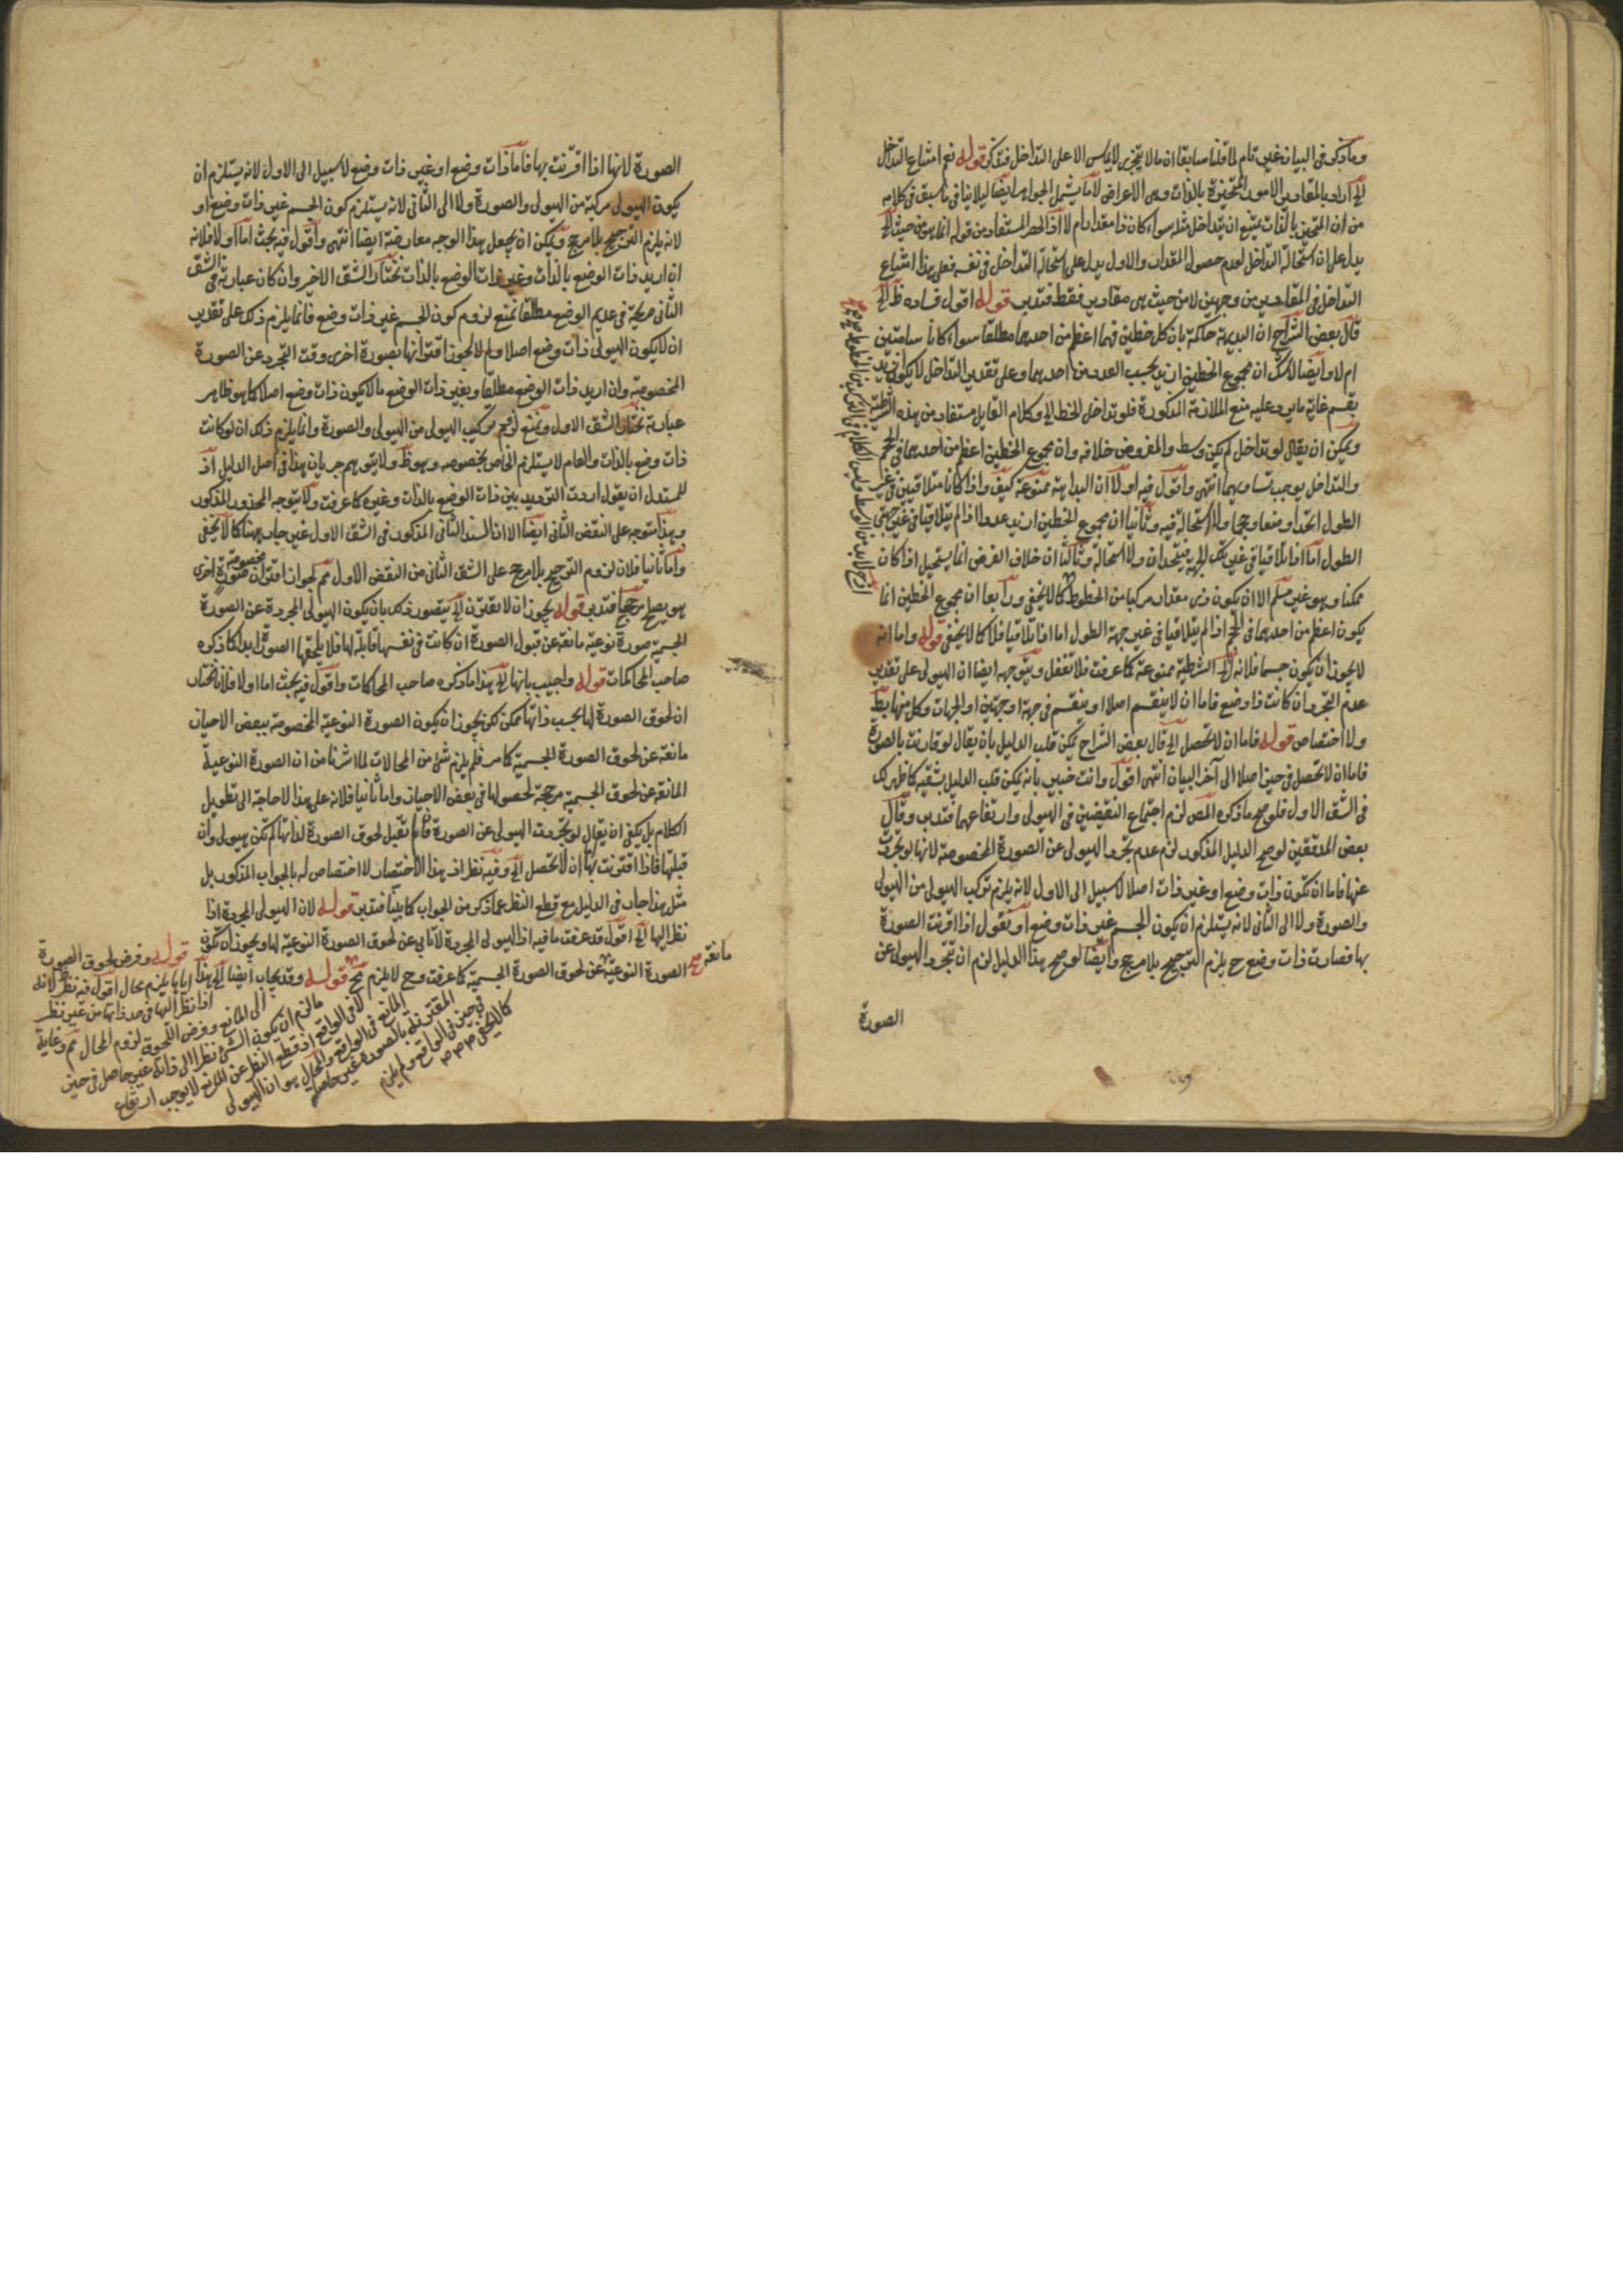 وما ذكر فى البيان غير تام لما قلنا سابقا ان ما لا يتجزى لا يماس الا على التداخل فتذكر قوله نعم امتناع التداخل
الخ اراد بالمقادير الامور المتحيزة بالذات وهى الاعراض لا ما يشمل الجواهر ايضا ليلا ينافى ما سبق فى كلامه
من ان المتحيز بالذات يمتنع ان يتداخل مثله سواء كان ذا مقدار ام لا اذ الحصر المستفاد من قوله انما هو من حيث الخ
يدل على ان استحالة التداخل لعدم حصول المقدار والاول يدل على استحالة التداخل فى نفسه فعلى هذا امتناع
التداخل فى المقادير من وجهين لا من حيث هى مقادير فقط فتدبر قوله اقول فساده ظ الخ
قال بعض الشراح ان البديهة حاكمة بان كل خطين فهما اعظم من احدهما مطلقا سواء كانا
ام لا وايضا لا شك ان مجموع الخطين ازيد بحسب العدد من احدهما وعلى تقدير التداخل لا يكون ازيد
غاية ما يرد عليه منع الملازمة المذكورة فلو تداخل الخط الخ وكلام القايل مستفاد من هذه الشرطية
ويمكن ان يقال لو تداخل لم يكن وسط والمفروض خلافه وان مجموع الخطين اعظم من احدهما فى الحجم
والتداخل يوجب تساويهما انتهى واقول فيه اولا ان البداهة ممنوعة كيف واذا كانا متلاقيين فى غير
الطول اتحدا وضعا وحجما ولا استحالة فيه وثانيا ان مجموع الخطين ازيد عددا اذا لم يتلاقيا فى غير جهتى
الطول اما اذا تلاقيا فى غير تلك الجهة فيتحدان ولا استحالة وثالثا ان خلاف الفرض انما يستحيل اذا كان
ممكنا وهو غير مسلم الا ان يكون فرض مقدار مركبا من الخطوط كما لا يخفى ورابعا ان مجموع الخطين انما
يكون اعظم من احدهما فى الحجم اذا لم يتلاقيا فى غير جهة الطول اما اذا تلاقيا فلا كما لا يخفى قوله واما انه
لا يجوز ان يكون جسما فلانه الخ الشرطية ممنوعة كما عرفت فلا تغفل ويتوجه ايضا ان الهيولى على تقدير
عدم التجرد ان كانت ذا وضع فاما ان لا ينقسم اصلا او ينقسم فى جهة او جهتين او الجهات وكل منها بط
ولا اختصاص قوله فاما ان لا تحصل الخ قال بعض الشراح يمكن قلب الدليل بان يقال لو قارنت بالصورة
فاما ان لا تحصل فى حيز اصلا الى آخر البيان انتهى اقول وانت خبير بانه يمكن قلب الدليل بشقيه كما ظهر لك
فى الشق الاول فلو صح ما ذكره المص لزم اجتماع النقيضين فى الهيولى وارتفاعهما فتدبر وقال
بعض المدققين لو صح الدليل المذكور لزم عدم تجرد الهيولى عن الصورة المخصوصة لانها لو تجردت
عنها فاما ان تكون ذات وضع او غير ذات اصلا لا سبيل الى الاول لانه يلزم تركب الهيولى من الهيولى
والصورة ولا الى الثانى لانه يستلزم ان يكون الجسم غير ذات وضع او نقول اذا اقترنت الصورة
بها فصارت ذات وضع ح يلزم الترجيح بلا مرجح وايضا لو صح هذا الدليل لزم ان تتجرد الهيولى عن
الصورة
الصورة لانها اذا اقترنت بها فاما ذات وضع او غير ذات وضع لا سبيل الى الاول لانه يستلزم ان
يكون الهيولى مركبة من الهيولى والصورة ولا الى الثانى لانه يستلزم كون الجسم غير ذات وضع او
لانه يلزم الترجيح بلا مرجح ويمكن ان يجعل هذا الوجه معارضة ايضا انتهى واقول فيه بحث اما اولا فلانه
ان اريد ذات الوضع بالذات وغير ذات الوضع بالذات نختار الشق الاخير وان كان عبارته فى الشق
الثانى صريحة فى عديم الوضع مطلقا نمنع لزوم كون الجسم غير ذات وضع فانما يلزم ذلك على تقدير
ان لا يكون الهيولى ذات وضع اصلا ولم لا يجوز اقترانها بصورة اخرى وقت التجرد عن الصورة
المخصوصة وان اريد ذات الوضع مطلقا وبغير ذات الوضع ما لا يكون ذات وضع اصلا كما هو ظاهر
عبارته نختار الشق الاول ونمنع لزوم تركيب الهيولى من الهيولى والصورة وانما يلزم ذلك ان لو كانت
ذات وضع بالذات والعام لا يستلزم الخاص بخصوصه وهو ظ ولا يتوهم جريان هذا فى اصل الدليل اذ
للمستدل ان يقول اردت الترديد بين ذات الوضع بالذات وغيره كما عرفت ولا يتوجه المحذور المذكور
وهذا متوجه على النقض الثانى ايضا الا ان السند الثانى المذكور فى الشق الاول غير جار ههنا كما لا يخفى
واما ثانيا فلان لزوم الترجيح بلا مرجح على الشق الثانى من النقض الاول مم لجواز اقتران صورة مخصوصة اخرى
هو يصلح مرجحا فتدبر قوله يجوز ان لا تقترن الخ يتصور ذلك بان يكون الهيولى المجردة عن الصورة
الجسمية صورة نوعية مانعة عن قبول الصورة ان كانت فى نفسها قابلة لها فلا يلحقها الصورة ابدا كما ذكره
صاحب المحاكمات قوله واجيب بانها الخ هذا ما ذكره صاحب المحاكمات واقول فيه بحث اما اولا فلانا نختار
ان لحوق الصورة لها بحسب ذاتها ممكن لكن يجوز ان يكون الصورة النوعية المخصوصة ببعض الاحيان
مانعة عن لحوق الصورة الجسمية كما مر فلم يلزم شئ من المحالات لما اشرنا من ان الصورة النوعية
المانعة عن لحوق الجسمية مرجحة لحصولها فى بعض الاحياز واما ثانيا فلانه على هذا لا حاجة الى تطويل
الكلام بل يكفى ان يقال لو تجردت الهيولى عن الصورة فان لم تقبل لحوق الصورة لذاتها لم تكن هيولى وان
قبلتها فاذا اقترنت بها ان لا تحصل الخ وفيه نظر اذ هذا الاختصار لا اختصاص له بالجواب المذكور بل
مثل هذا جار فى الدليل مع قطع النظر عما ذكر من الجواب كما بينا فتدبر قوله لان الهيولى المجردة اذا
نظر اليها الخ اقول قد عرفت ما فيه اذ الهيولى المجردة لا تابى عن لحوق الصورة النوعية لها ويجوز ان تكون
الصورة النوعية مانعة عن لحوق الصورة الجسمية كما عرفت وح لا يلزم قوله وقد يجاب ايضا الخ هذا
قوله وفرض لحوق الصورة
اياها يلزم محال اقول فيه نظر لانه
اذا نظر اليها فى حد ذاتها من غير نظر
الى المانع وفرض اللحوق لزوم المحال مم وغاية
ما لزم ان يكون الشئ نظرا الى ذاته غير حاصل فى حيز
لا فى الواقع اذ قطع النظر عن المانع لا يوجب ارتفاع
المانع فى الواقع والمحال هو ان الهيولى
المقترنة بالصورة غير حاصلة
فى حيز فى الواقع ولم يلزم
كما لا يخفى